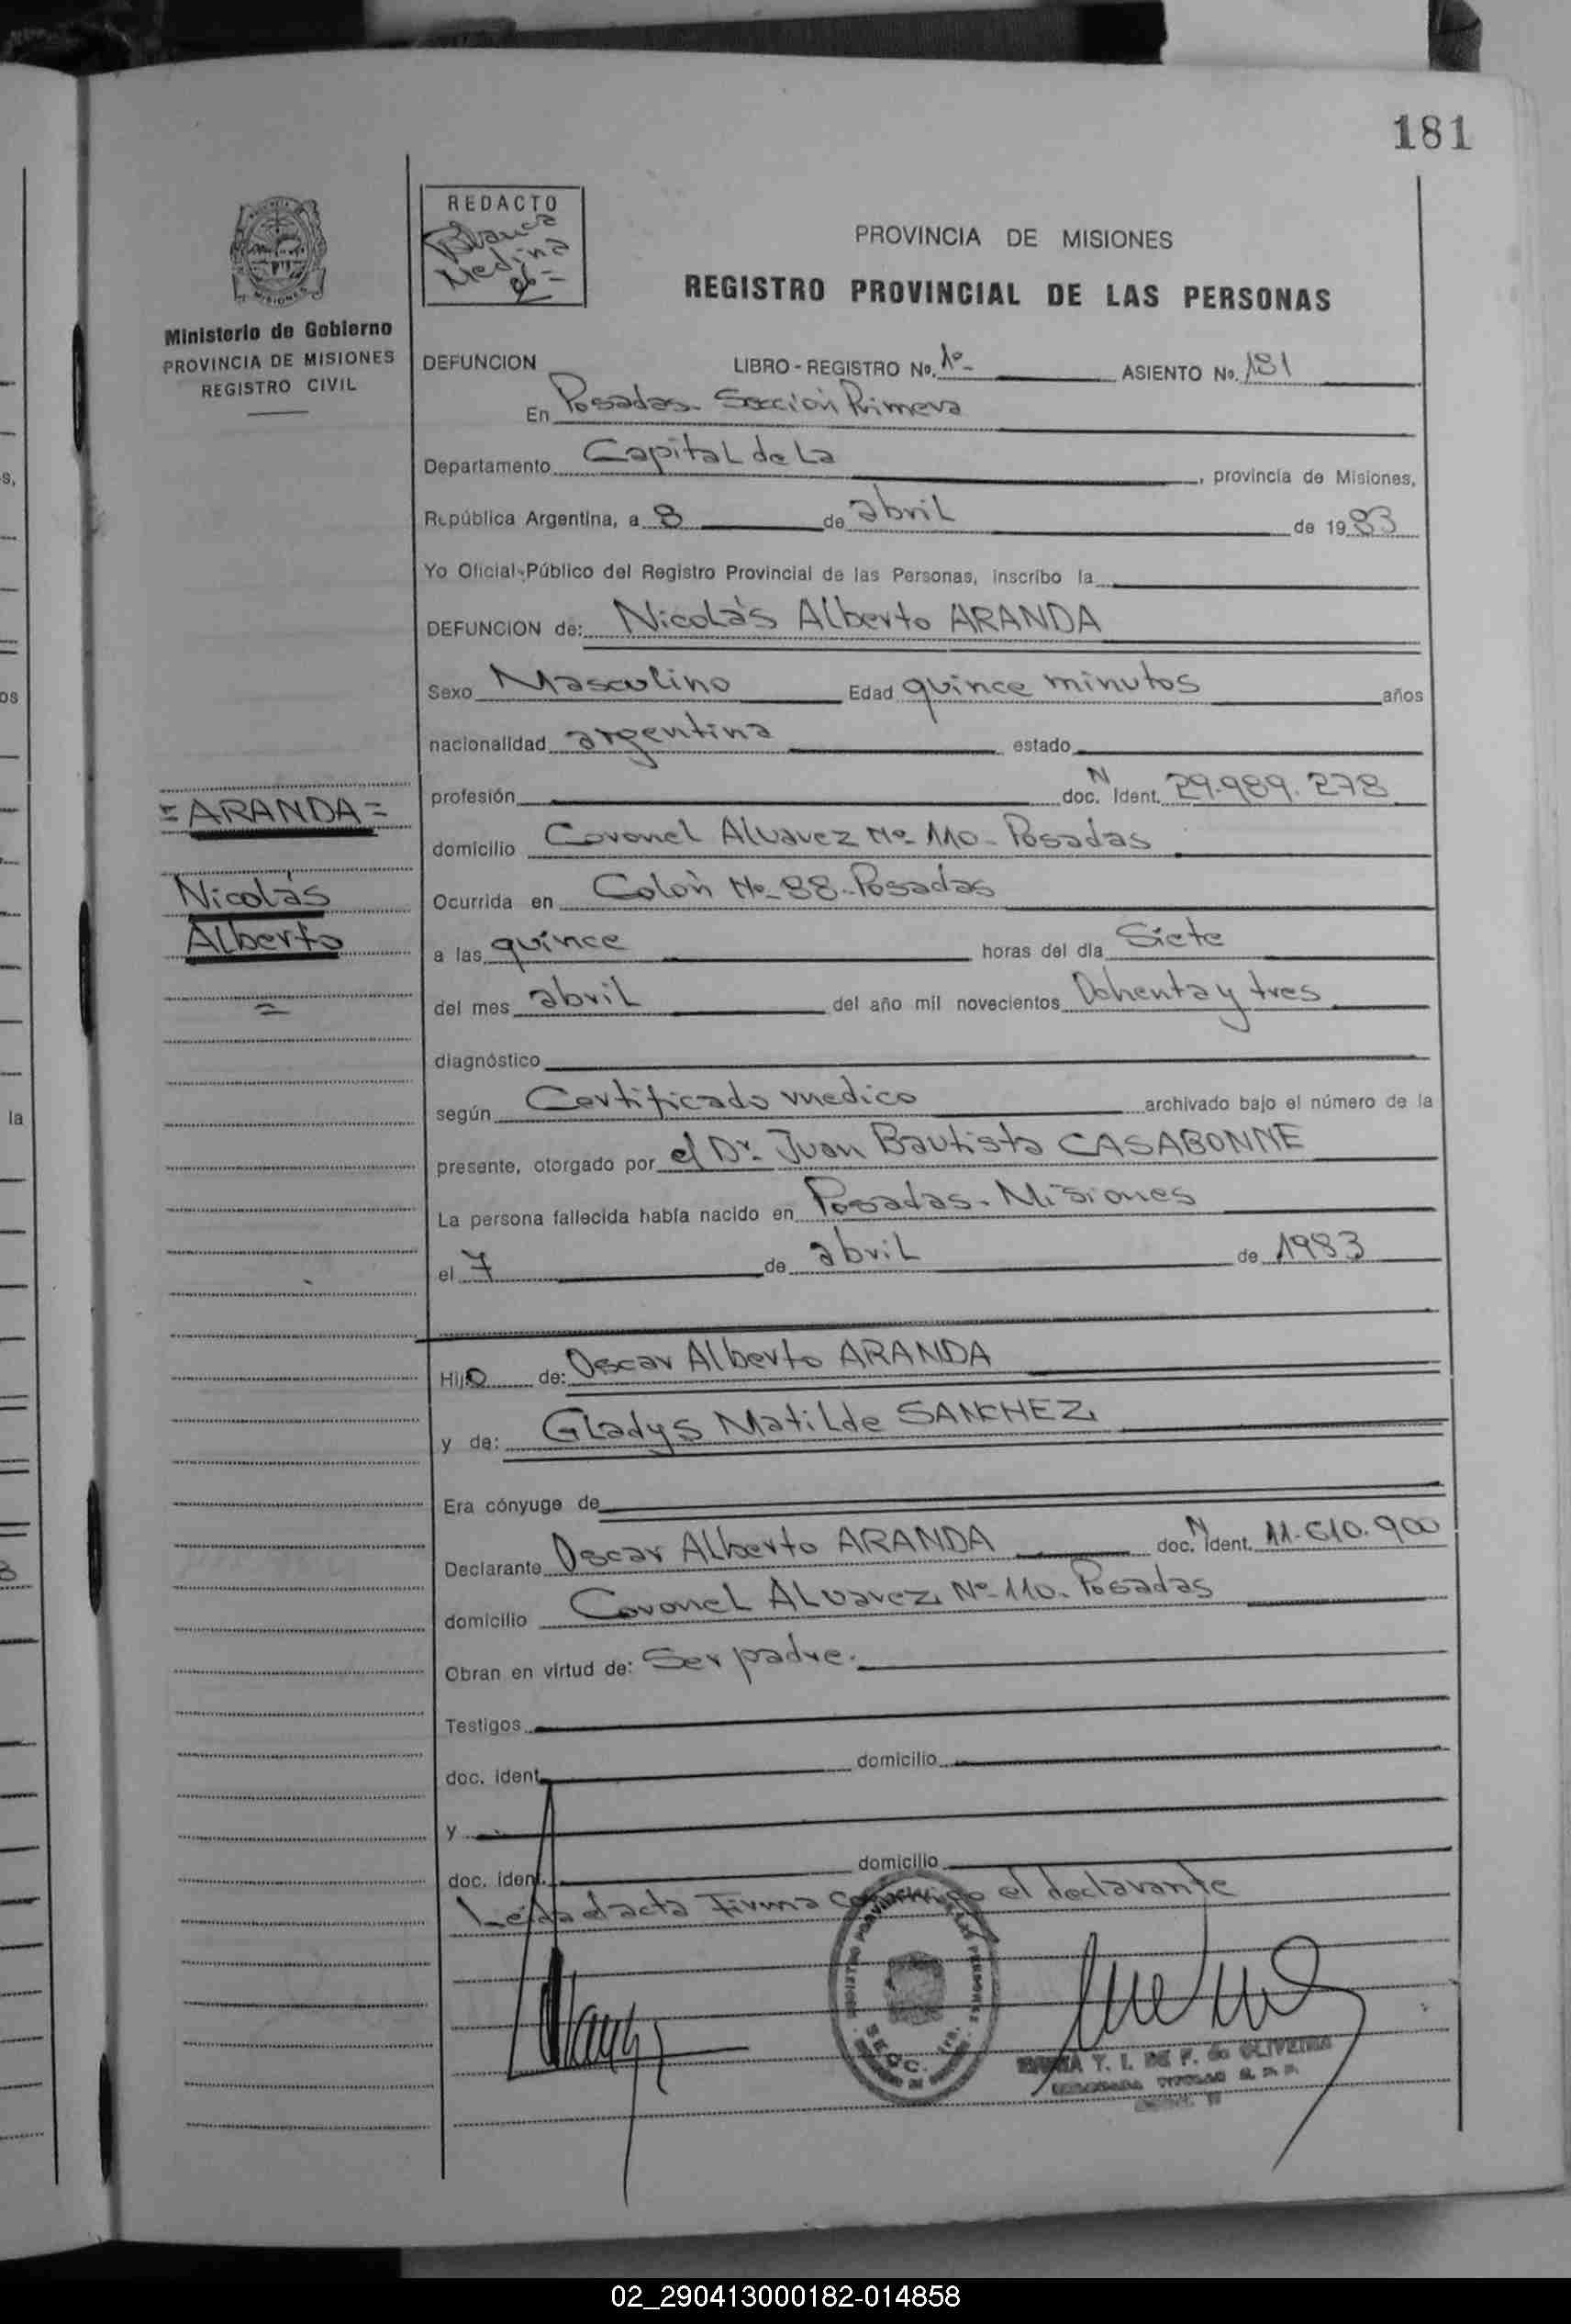 181
REDACTO
Blanca
Medina
PROVINCIA DE MISIONES
REGISTRO PROVINCIAL DE LAS PERSONAS
Ministerio de Gobierno
PROVINCIA DE MISIONES
REGISTRO CIVIL
DEFUNCION LIBRO - REGISTRO Nº. 1º- ASIENTO Nº. 181
En Posadas- Sección Primera
Departamento Capital de La , provincia de Misiones,
República Argentina, a 8 de abril de 1983
Yo Oficial Público del Registro Provincial de las Personas, inscribo la
DEFUNCION de: Nicolás Alberto ARANDA
Sexo Masculino Edad quince minutos años
nacionalidad argentina estado
profesión doc. N Ident. 29.989.278
=ARANDA=
domicilio Coronel Alvarez Nº 110- Posadas
Nicolás
Ocurrida en Colón Nº 88- Posadas
Alberto
a las quince horas del día Siete
=
del mes abril del año mil novecientos Ochenta y tres
diagnóstico
según Certificado medico archivado bajo el número de la
presente, otorgado por el Dr. Juan Bautista CASABONNE
La persona fallecida había nacido en Posadas- Misiones
el 7 de abril de 1983
Hijo de: Oscar Alberto ARANDA
y de: Gladys Matilde SANCHEZ
Era cónyuge de
Declarante Oscar Alberto ARANDA doc. N ident. 11.610.900
domicilio Coronel Alvarez Nº 110- Posadas
Obran en virtud de: Ser padre.
Testigos
doc. ident. domicilio
y
doc. ident. domicilio
Leída el acta Firma conmigo el declarante
SECC. 1ra.
T. I. DE F. de OLIVEIRA
la
os
s,
02_290413000182-014858